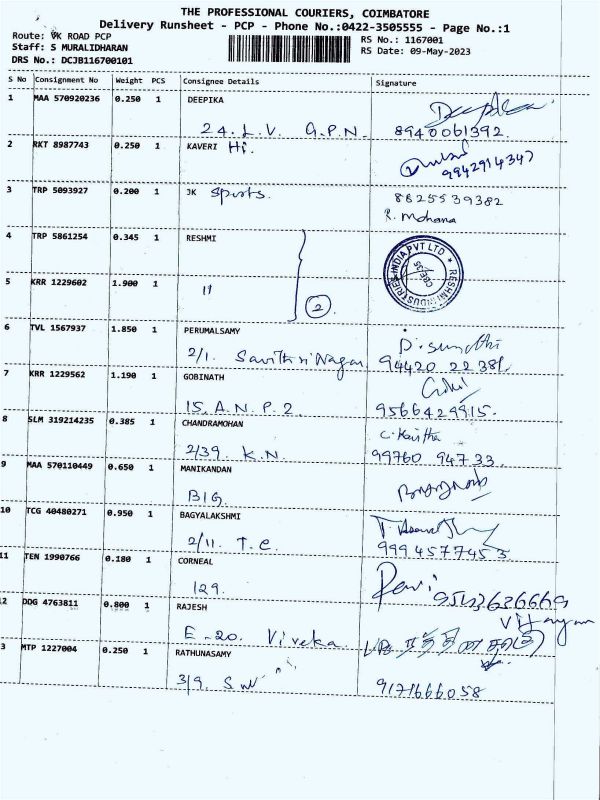 THE PROFESSIONAL COURIERS, COIMBATORE
Delivery Runsheet - PCP - Phone No.:0422-3505555 - Page No.:1
Route: VK ROAD PCP
RS No.: 1167001
Staff: S MURALIDHARAN
RS Date: 09-May-2023
DRS No.: DCJB116700101
S No Consignment No Weight PCS Consignee Details Signature
1 MAA 570920236 0.250 1 DEEPIKA
24. L.V. G.P.N. 8940061392.
2 RKT 8987743 0.250 1 KAVERI Hi.
9942914347
3 TRP 5093927 0.200 1 JK Sports. 8825539382
R. Mohana
4 TRP 5861254 0.345 1 RESHMI
RESHMI INDUSTRIES INDIA PVT LTD
CBE-35
5 KRR 1229602 1.900 1 11
2
6 TVL 1567937 1.850 1 PERUMALSAMY
2/1. Savithri Nagar 94420 22381
7 KRR 1229562 1.190 1 GOBINATH
15. A.N.P. 2. 9566429915.
8 SLM 319214235 0.385 1 CHANDRAMOHAN
2/39. K.N. 99760 94733.
9 MAA 570110449 0.650 1 MANIKANDAN
BIG.
10 TCG 40480271 0.950 1 BAGYALAKSHMI
2/11. T.C. 9994577453
11 TEN 1990766 0.180 1 CORNEAL
129. Ravi 9543636669
12 DDG 4763811 0.800 1 RAJESH
E-20. Viveka.
13 MTP 1227004 0.250 1 RATHUNASAMY
3/9. S.W 9171666058